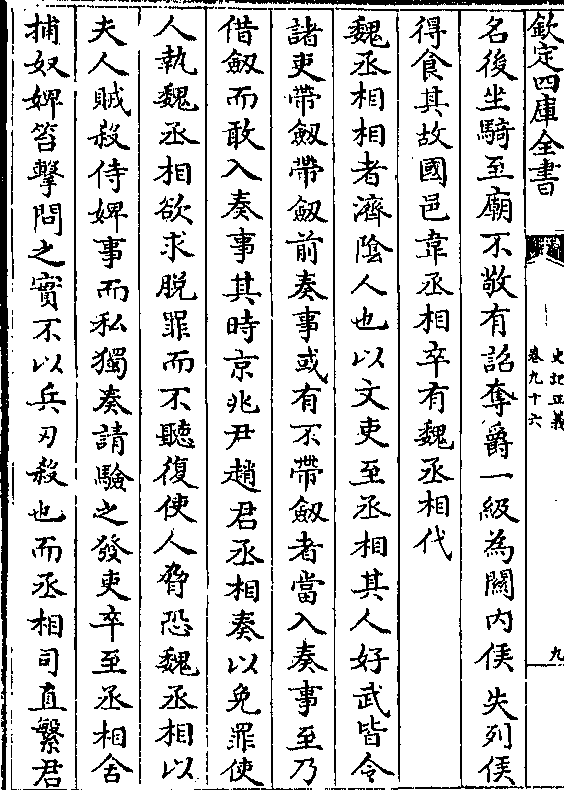 欽定四庫全書
史記正義
卷九十六
九
名後坐騎至廟不敬有詔奪爵一級為關内侯失列侯
得食其故國邑韋丞相卒有魏丞相代
魏丞相相者濟隂人也以文吏至丞相其人好武皆令
諸吏帶劔帶劔前奏事或有不帶劔者當入奏事至乃
借劔而敢入奏事其時京兆尹趙君丞相奏以免罪使
人執魏丞相欲求脱罪而不聽復使人脅恐魏丞相以
夫人賊殺侍婢事而私獨奏請驗之發吏卒至丞相舍
捕奴婢笞擊問之實不以兵刃殺也而丞相司直繁君